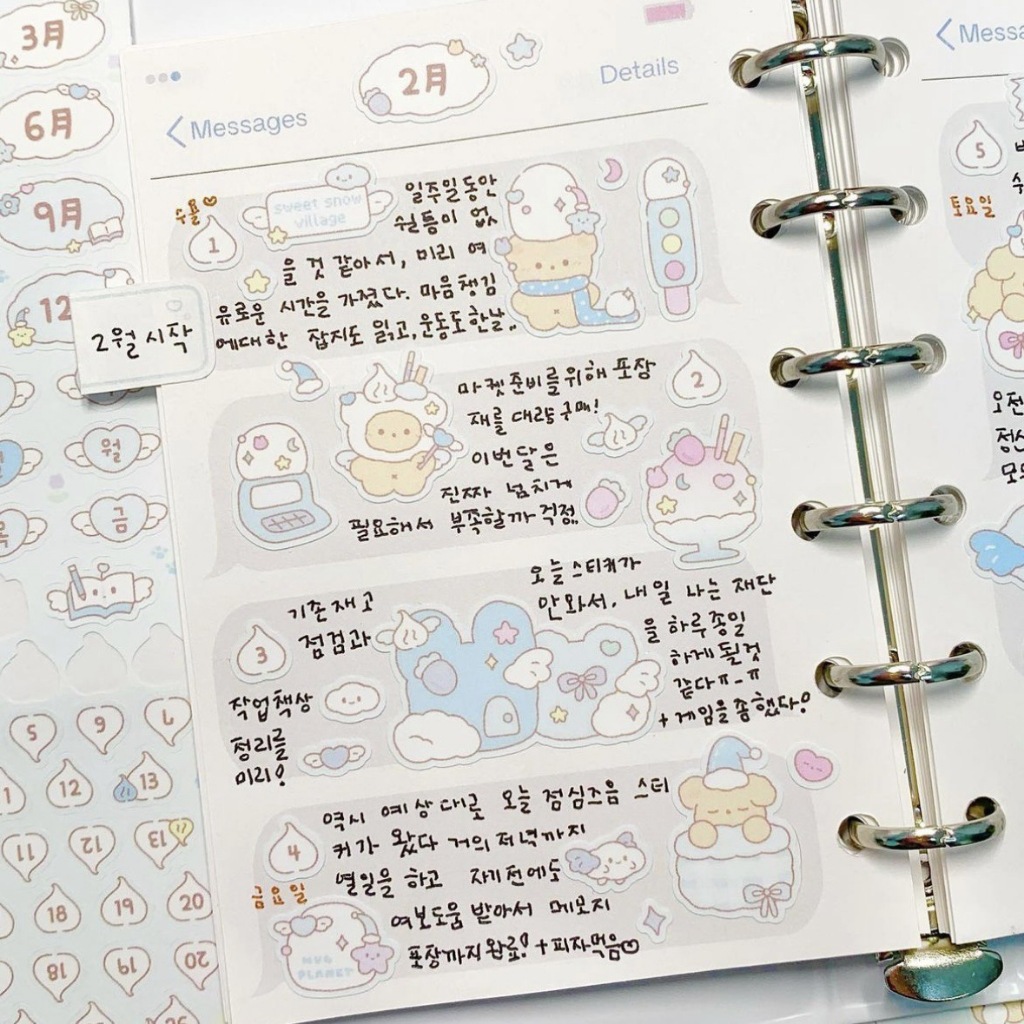 3月
6月
9月
12
월
금
5
6
12
13
11
12
13
18
19
20
18
19
20
2월 시작
2月
Details
Messages
수욜♡
1
sweet snow
village
일주일동안
쉴틈이 없
을 것 같아서, 미리 여
유로운 시간을 가졌다. 마음챙김
에대한 잡지도 읽고, 운동도한날..
2
마켓준비를위해 포장
재를 대량구매!
이번달은
진짜 넘치게
필요해서 부족할까 걱정..
3
기존재고
점검과
작업책상
정리를
미리!
오늘 스티커가
안와서, 내일 나는 재단
을 하루종일
하게 될것
같다ㅠ-ㅠ
+ 게임을좀했다!
4
금요일
역시 예상대로 오늘 점심즈음 스티
커가 왔다 거의 저녁까지
열일을 하고 자기전에도
여보도움 받아서 메모지
포장까지완료! + 피자먹음♡
PLANET
5
토요일
오전